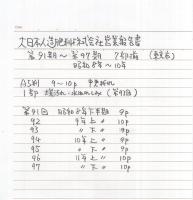 大日本人造肥料株式会社営業報告書
第91期〜第97期 7部揃 (東京)
昭和8年〜10年
A5判 9〜10p
1部 (第97回)
第91回 昭和8年下半期 9p
92 9年上 〃 10p
93 〃 下 〃 9p
94 10年上 〃 9p
95 〃 下 〃 9p
96 11年上 〃 10p
97 〃 下 〃 10p